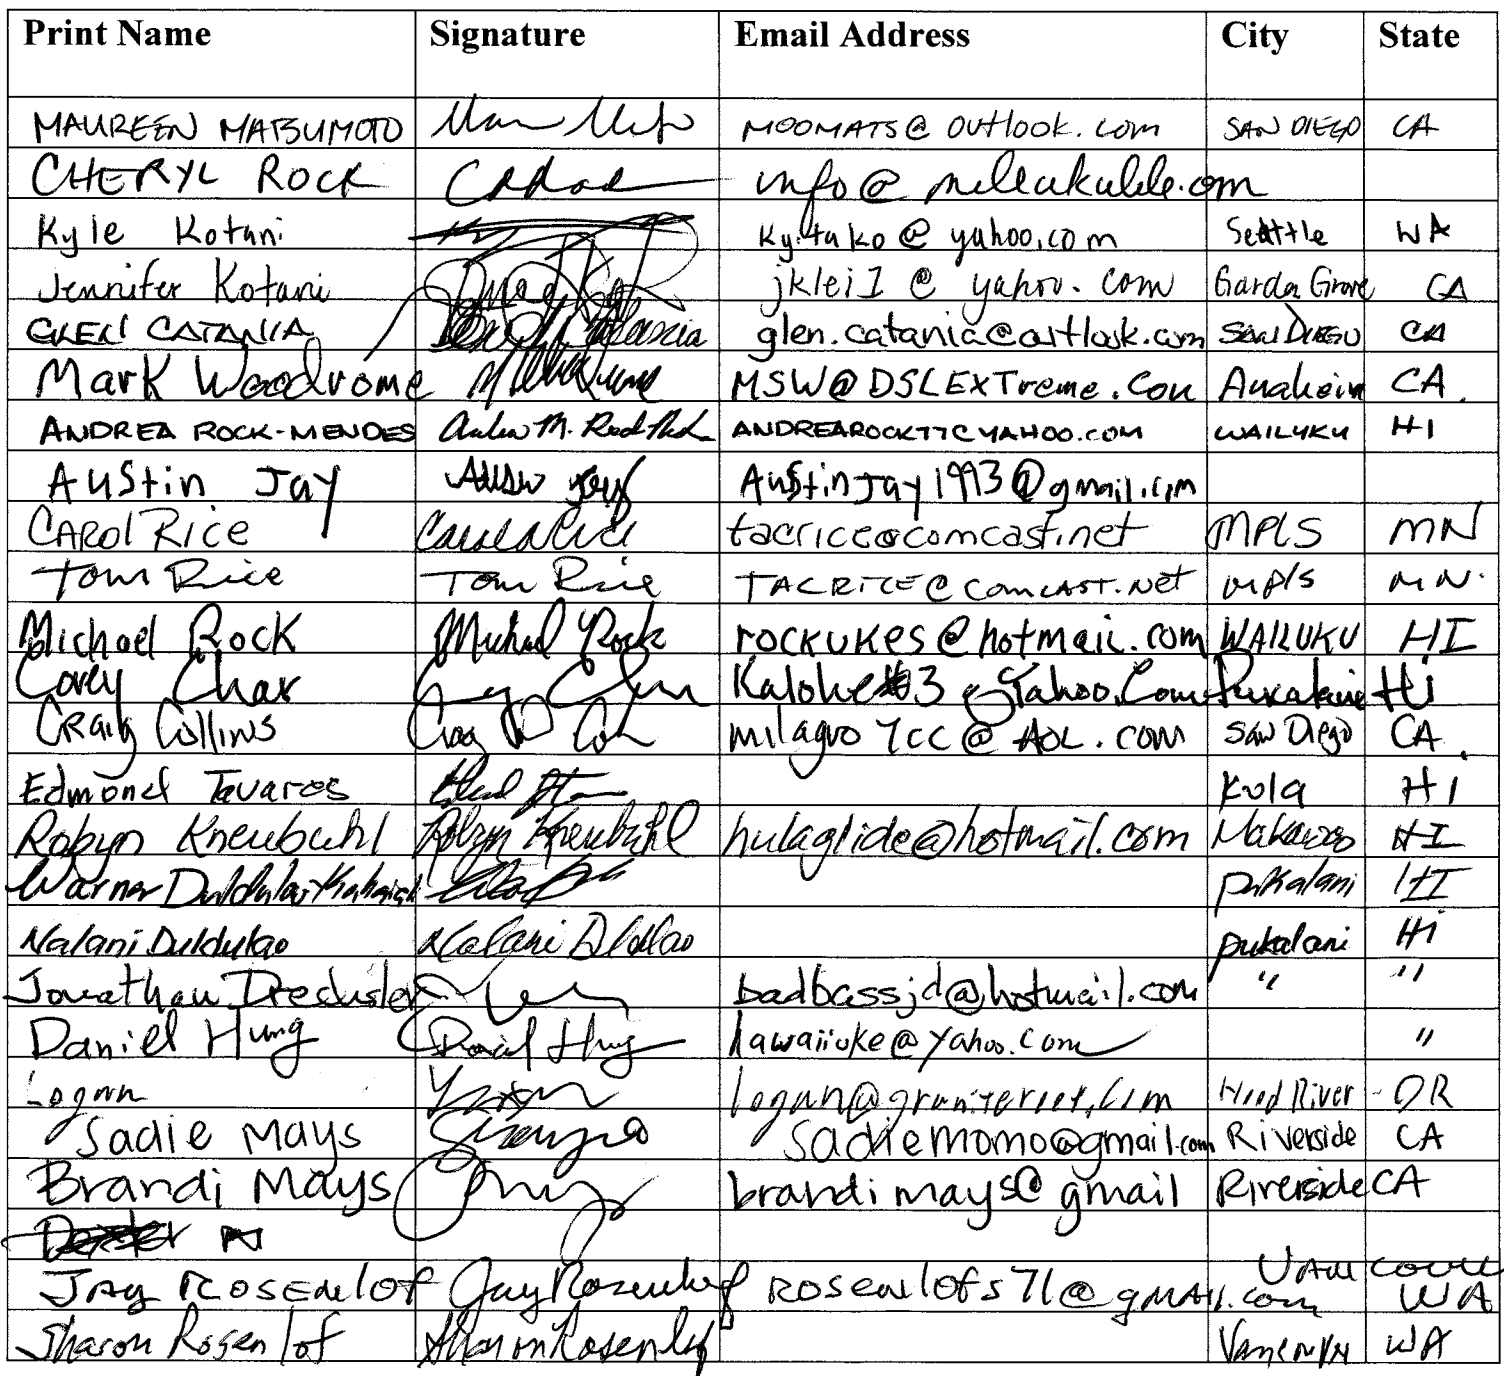 Print Name Signature Email Address City State
MAUREEN MATSUMOTO MOOMATS@OUTLOOK.COM SAN DIEGO CA
CHERYL ROCK info@
Kyle Kotani kytako@yahoo.com Seattle WA
Jennifer Kotani jklei1@yahoo.com Garden Grove CA
GLEN CATANIA glen.catania@outlook.com SAN DIEGO CA
Mark Woodrome MSW@DSLEXTreme.Com Anaheim CA
ANDREA ROCK-MENDES ANDREAROCK77@YAHOO.COM WAILUKU HI
Austin Jay AustinJay1993@gmail.com
CAROL RICE tacrice@comcast.net MPLS MN
Tom Rice Tom Rice TACRICE@COMCAST.Net MPLS MN.
Michael Rock Michael Rock rockukes@hotmail.com WAILUKU HI
Corey Char Kalohe#3@Yahoo.Com Pukalani Hi
Craig Collins milagro7cc@AOL.com San Diego CA.
Edmond Tavares Kula HI
Robyn Kneubuhl Robyn Kneubuhl hulaglide@hotmail.com Makawao HI
Warner Pukalani HI
Nalani Duldulao Nalani Duldulao pukalani Hi
Jonathan Drechsler badbassjd@hotmail.com " "
Daniel Hung Daniel Hung hawaiiuke@yahoo.com "
Logan Hood River OR
Sadie Mays sadiemomo@gmail.com Riverside CA
Brandi Mays brandimays@gmail Riverside CA
Jay Rosenlof Jay Rosenlof rosenlofs71@gmail.com Vancouver WA
Sharon Rosenlof Sharon Rosenlof Vancouver WA